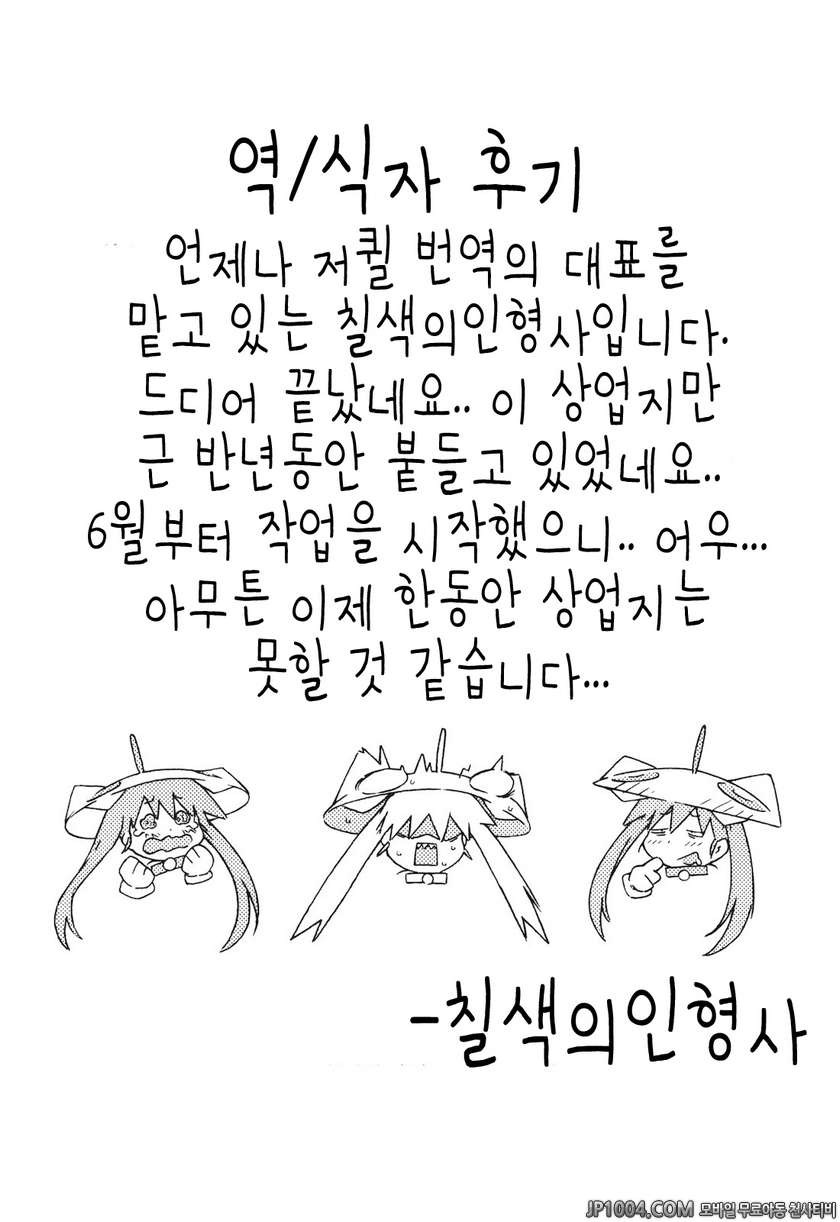 역/식자 후기
언제나 저퀄 번역의 대표를
맡고 있는 칠색의인형사입니다.
드디어 끝났네요.. 이 상업지만
근 반년동안 붙들고 있었네요..
6월부터 작업을 시작했으니.. 어우...
아무튼 이제 한동안 상업지는
못할 것 같습니다...
-칠색의인형사
JP1004.COM 모바일 무료야동 천사티비